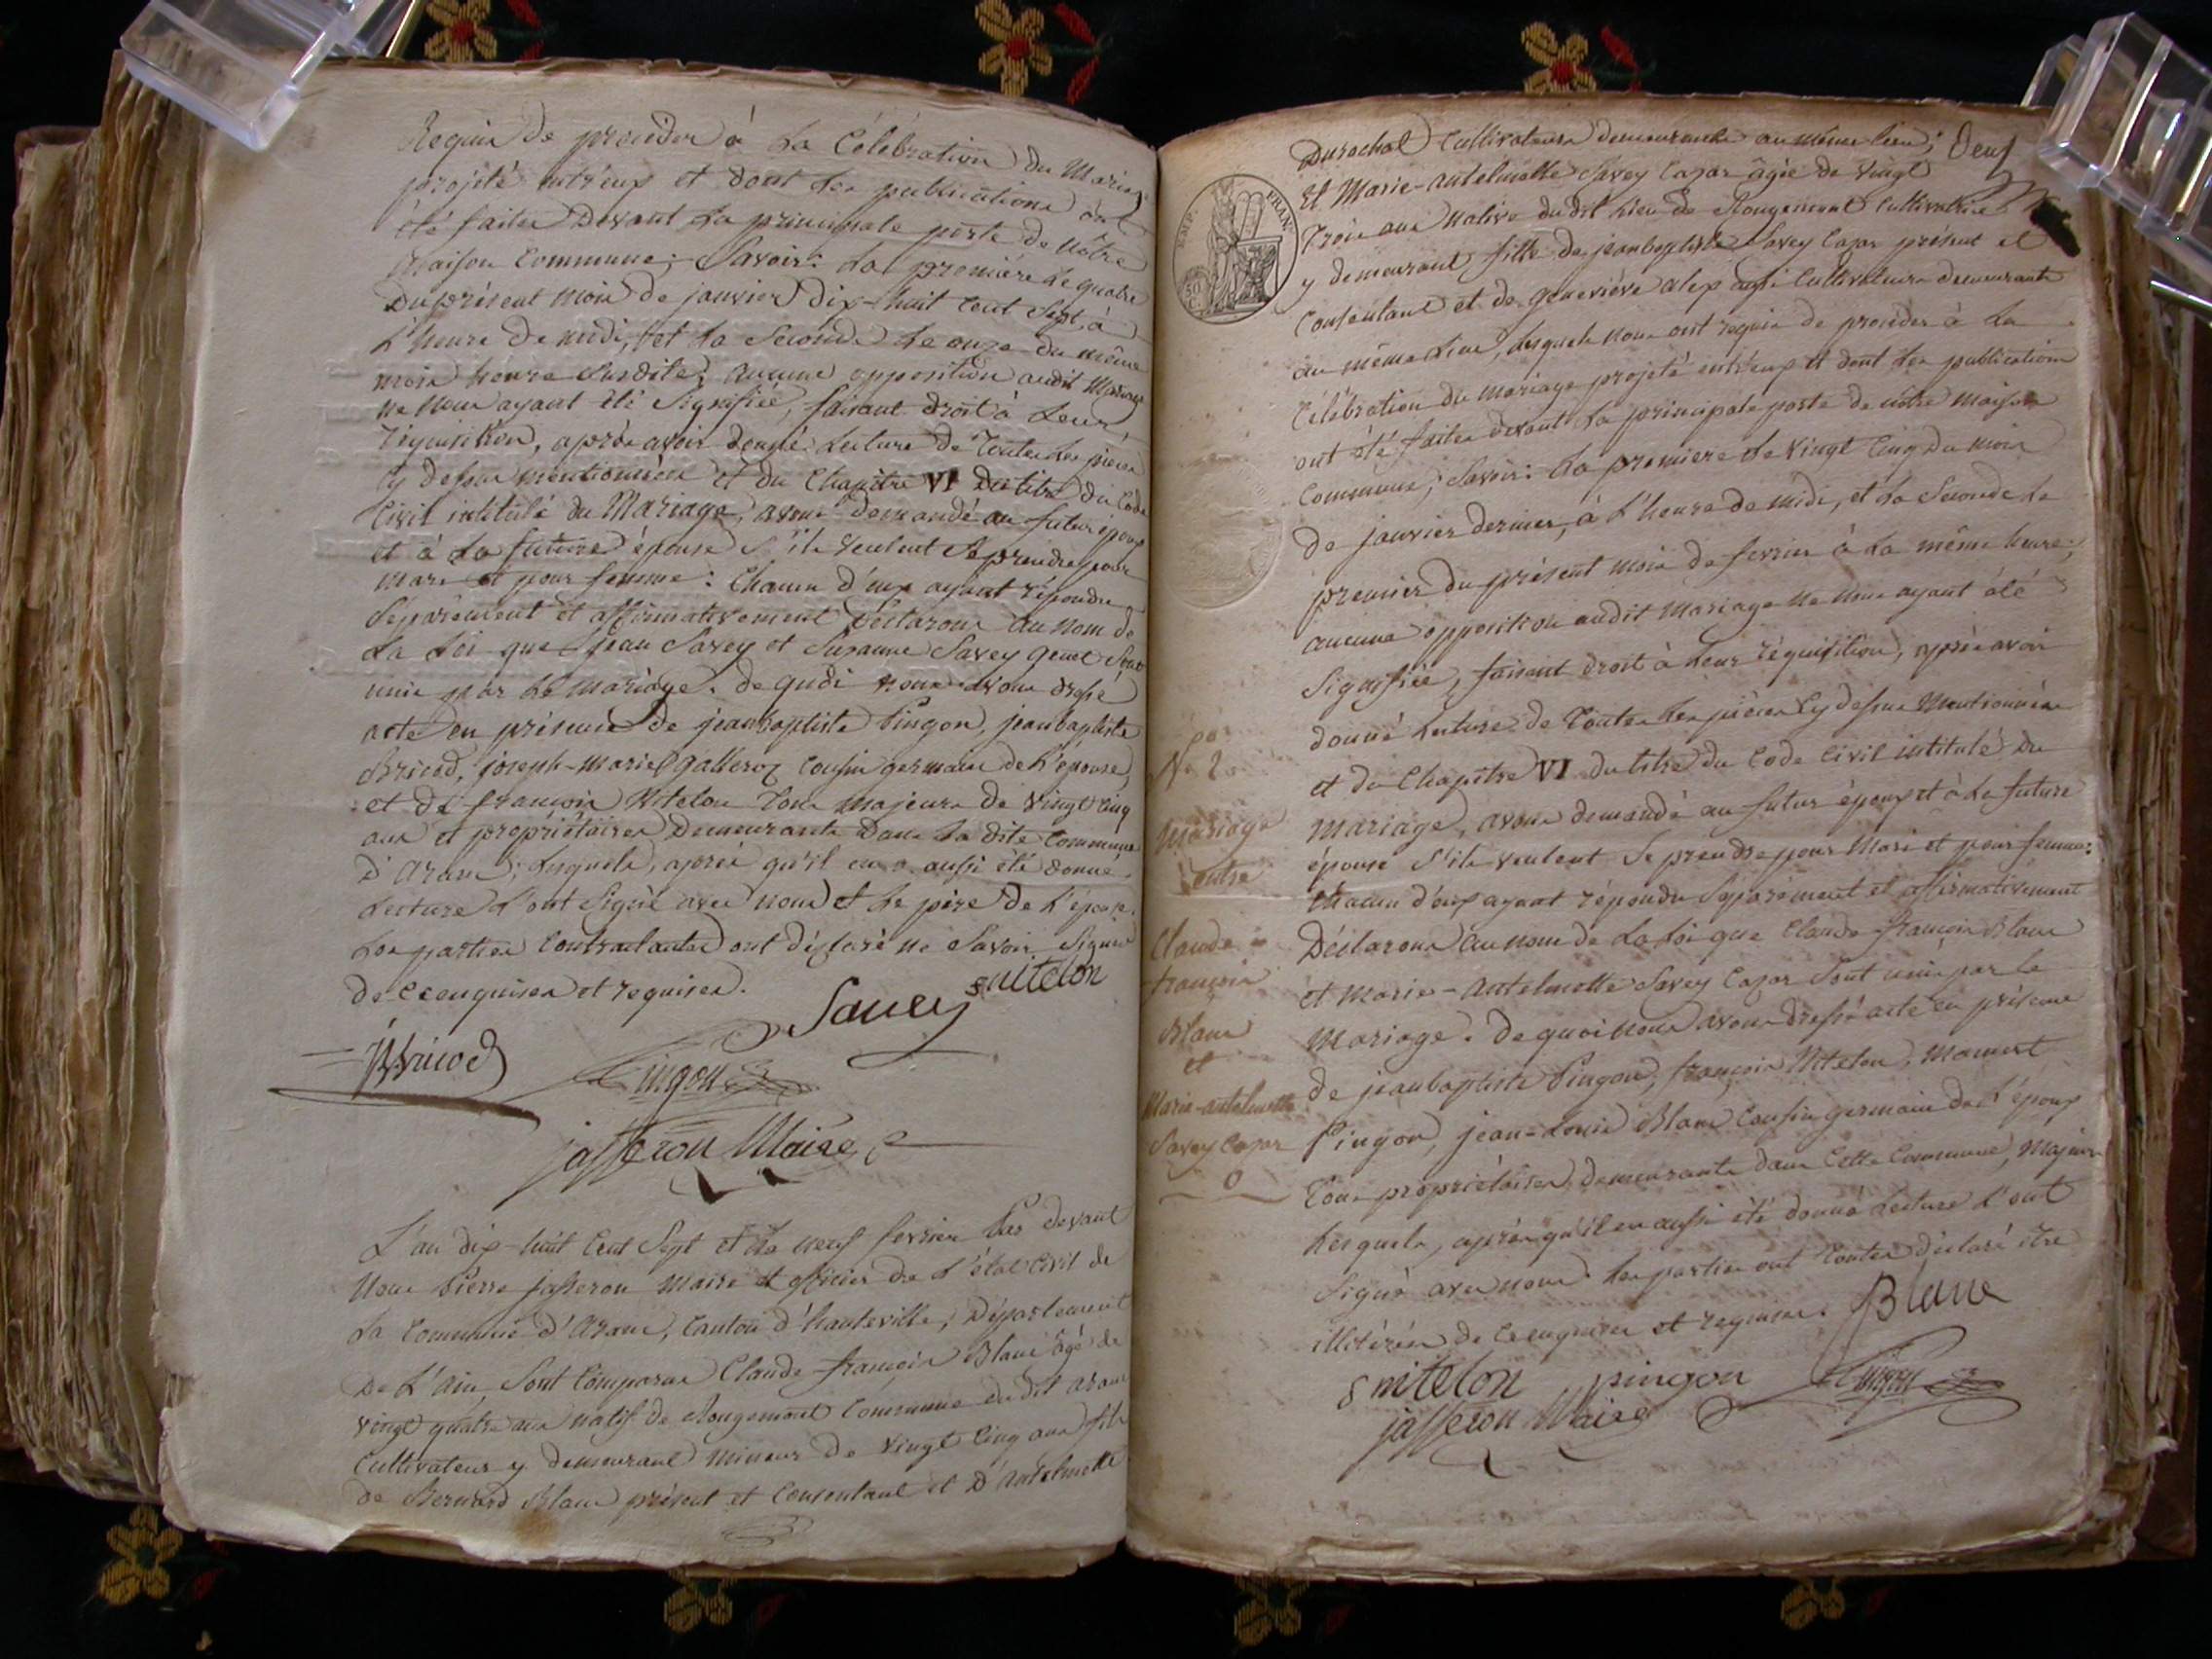 Requis de proceder à La Célébration du Mariage
projeté entr'eux et dont Les publications ont
été faites devant La principale porte de Nôtre
Maison Commune; Savoir: La première Le quatre
Du présent mois de janvier Dix-huit Cent Sept, à
L'heure de midi, et La Seconde Le onze du même
mois heure Susdite; Aucune opposition audit Mariage
ne Nous ayant été Signifiée, faisant droit à Leur
réquisition, après avoir donné Lecture de Toutes Les pièces
Cy dessus mentionnées et du Chapitre VI du titre du Code
Civil intitulé du Mariage, avons demandé au futur époux
et à La future épouse S'ils veulent Se prendre pour
Mari et pour femme: Chacun d'eux ayant répondu
Séparément et affirmativement Déclarons au Nom de
La Loi que Jean Savey et Susanne Savey Genet Sont
unis par Le mariage. de quoi nous avons dressé
acte en présence de jeanbaptiste Pingon, jeanbaptiste
Bricod, joseph-Marie Galleroz Cousin germain de L'épouse,
et de françois Vitelon Tous Majeurs de vingt Cinq
ans et propriétaires Demeurants Dans La dite Commune
D'Aranc; Lesquels, après qu'il en a aussi été donné
Lecture L'ont Signé avec nous et Le père de L'épouse.
Les parties Contractantes ont déclaré ne Savoir Signer
de Ce enquises et requises.
Savey vitelon
Bricod
Pingon
jasseron Maire
L'an dix-huit Cent Sept et Le neuf fevrier Pas devant
Nous Pierre jasseron Maire et officier de L'état Civil de
La Commune d'Aranc, Canton d'hauteville, Département
De L'Ain, Sont Comparus Claude-françois Blanc âgé de
vingt quatre ans natif de Rougemont Commune dudit Aranc
Cultivateur y demeurant mineur de vingt Cinq ans fils
de Bernard Blanc présent et Consentant et D'Antelmette
Durochat Cultivateurs demeurants au même lieu; deux
EMP. FRAN.
50
Et Marie-Antelmette Savey Cazar âgée de vingt
Trois ans Native dudit Lieu de Rougemont Cultivatrice
y demeurant fille de jeanbaptiste Savey Cazar présent et
Consentant et de geneviève alex aussi Cultivateurs demeurants
au même Lieu, Lesquels nous ont requis de proceder à La
Célébration du mariage projeté entr'eux et dont Les publications
ont été faites devant La principale porte de nôtre maison
Commune; Savoir: La première Le vingt Cinq du mois
de janvier dernier, à L'heure de midi, et La Seconde Le
premier du présent mois de fevrier à La même heure;
aucune opposition audit Mariage ne Nous ayant été
Signifiée, faisant droit à Leur réquisition, après avoir
donné Lecture de Toutes Les pièces Cy dessus Mentionnées
et du Chapitre VI du titre du Code Civil intitulé du
Mariage, avons demandé au futur époux et à La future
épouse S'ils veulent Se prendre pour Mari et pour femme:
Chacun d'eux ayant répondu Séparément et affirmativement
Déclarons au nom de La Loi que Claude françois Blanc
et Marie-Antelmette Savey Cazar Sont unis par le
Mariage. de quoi nous avons dressé acte en présence
de jeanbaptiste Pingon, françois Vitelon, Mamert
Pingon, jean-Louis Blanc Cousin germain de L'époux
Tous propriétaires demeurants dans Cette Commune, Majeurs
Lesquels, après qu'il en aussi été donné Lecture L'ont
Signé avec nous. Les parties ont Toutes déclaré être
illitérées de Ce enquises et requises. Blanc
vitelon pingon Pingon
jasseron Maire
No 2
Mariage
entre
Claude
françois
Blanc
et
Marie-antelmette
Savey Cazar